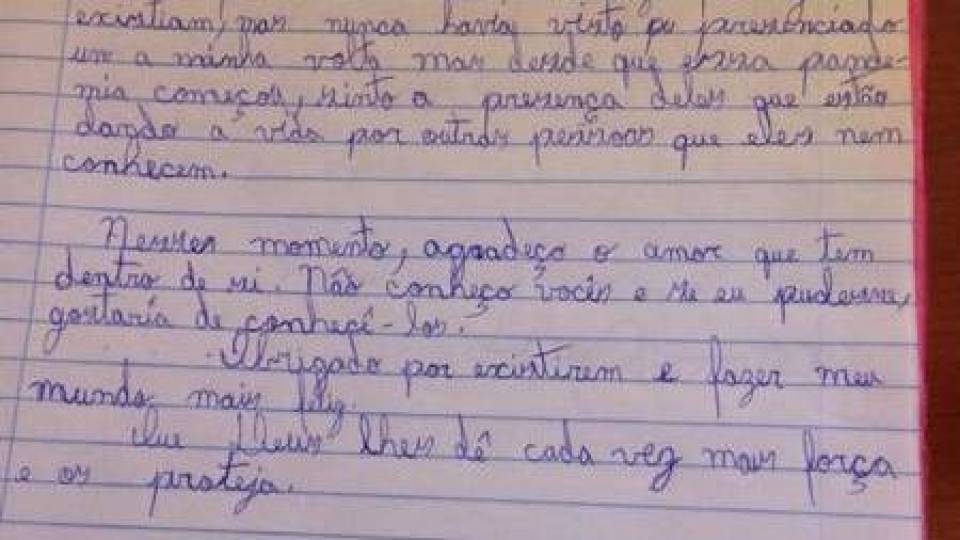 existiam, mas nunca havia visto ou presenciado
um a minha volta mas desde que essa pande-
mia começou, sinto a presença delas que estão
dando a vida por outras pessoas que eles nem
conhecem.
Nesses momento, agradeço o amor que tem
dentro de si. Não conheço vocês e se eu pudesse,
gostaria de conhecê-los.
Obrigado por existirem e fazer meu
mundo mais feliz.
Que Deus lhes dê cada vez mais força
e os proteja.